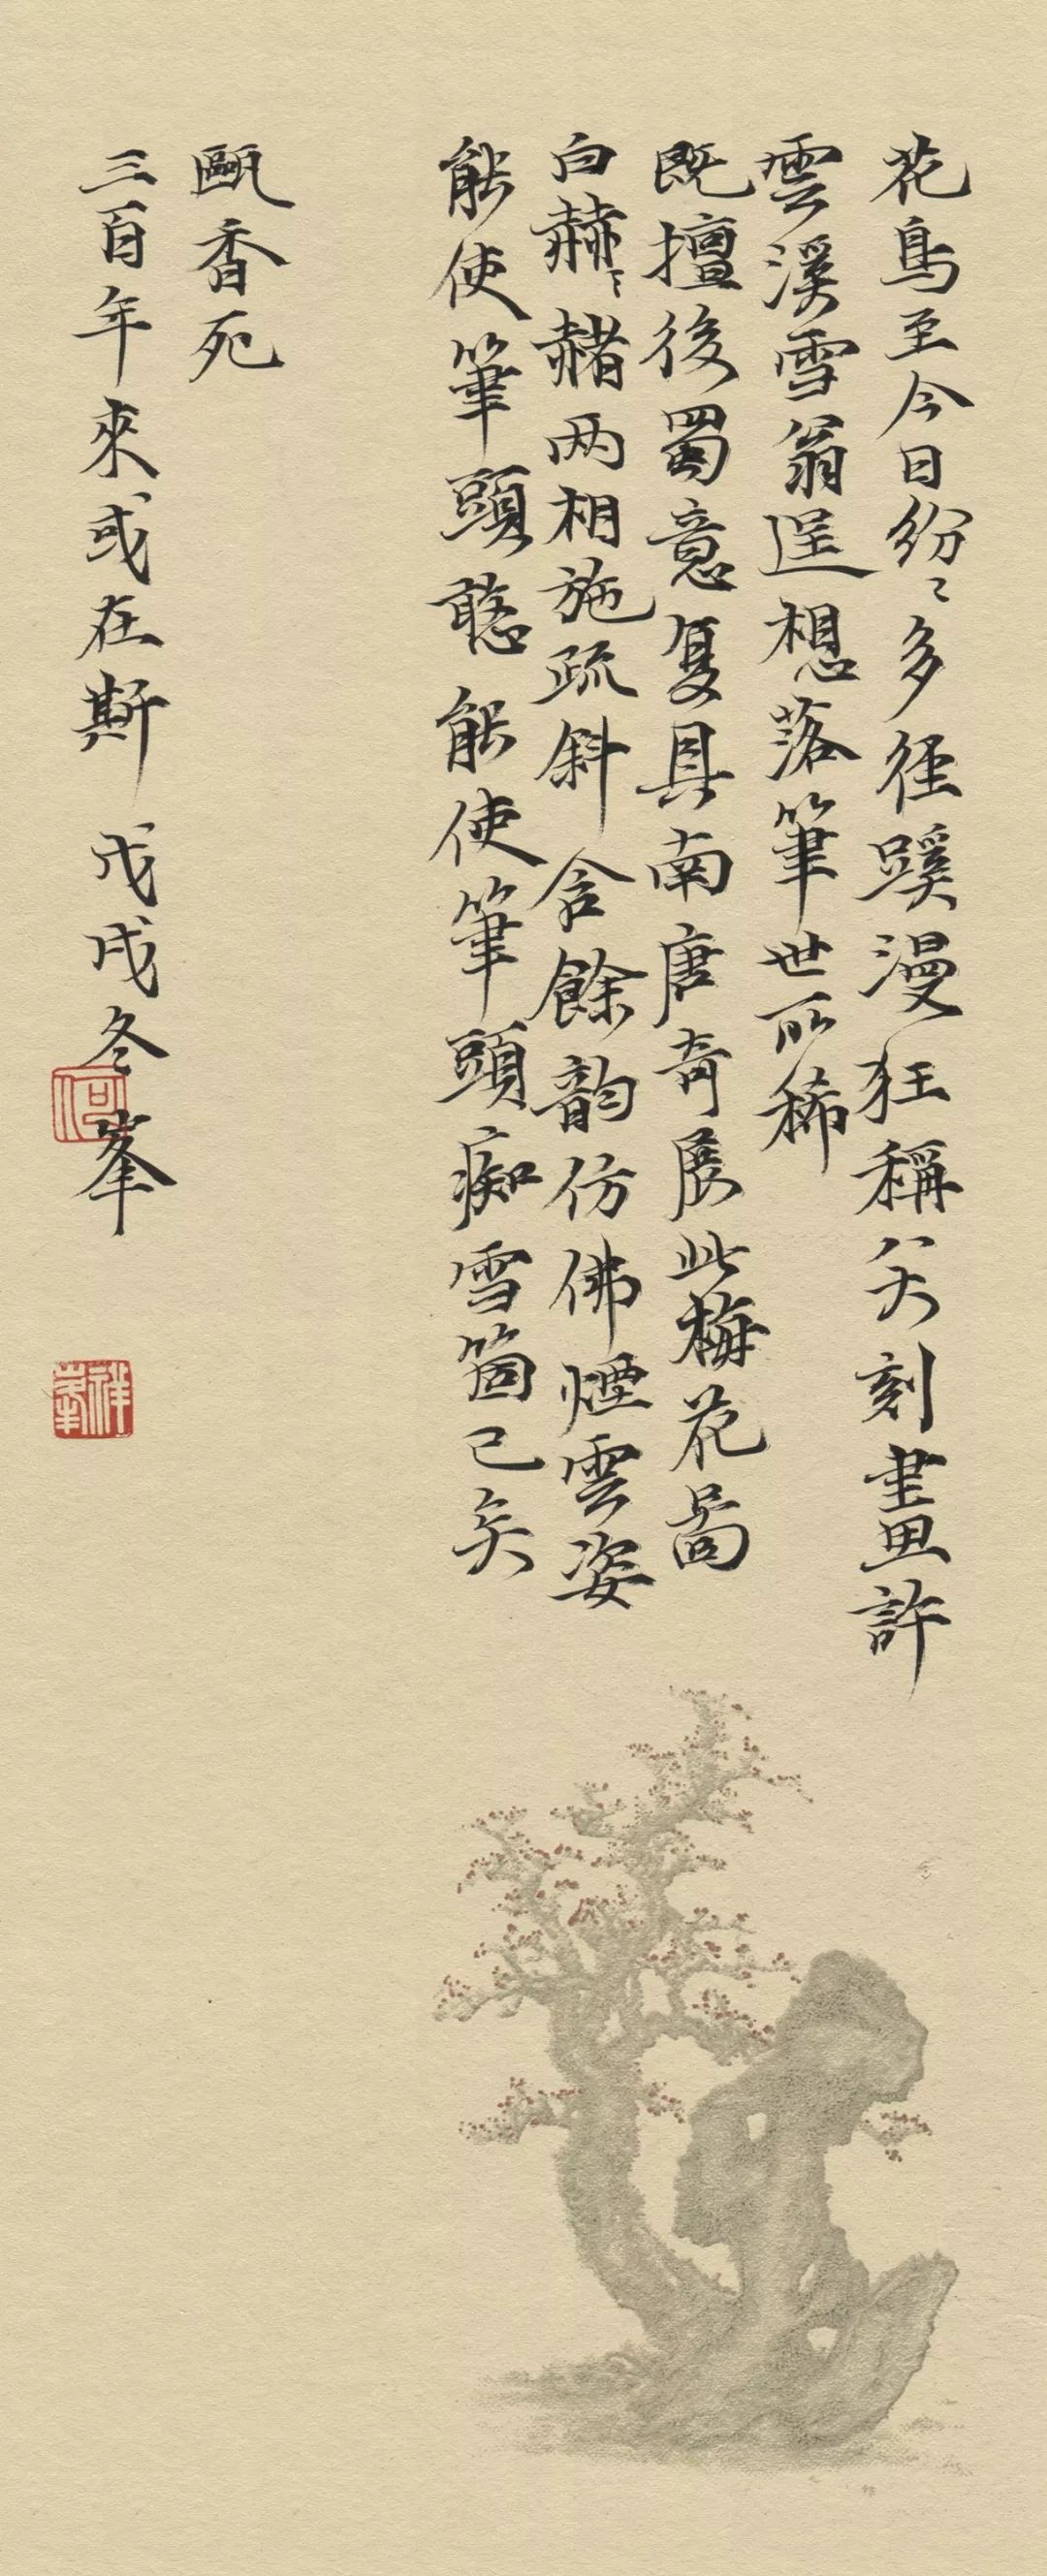 花鳥至今日紛〻多徑蹊漫狂稱八大刻畫許
雲溪雪翁逞想落筆世所稀
既擅後蜀意复具南唐奇展此梅花啚
白赫〻赭两相施疏斜含餘韵仿佛煙雲姿
能使筆頭憨能使筆頭痴雪箇已矣
甌香死
三百年來或在斯 戊戌冬峯
何
祥峯